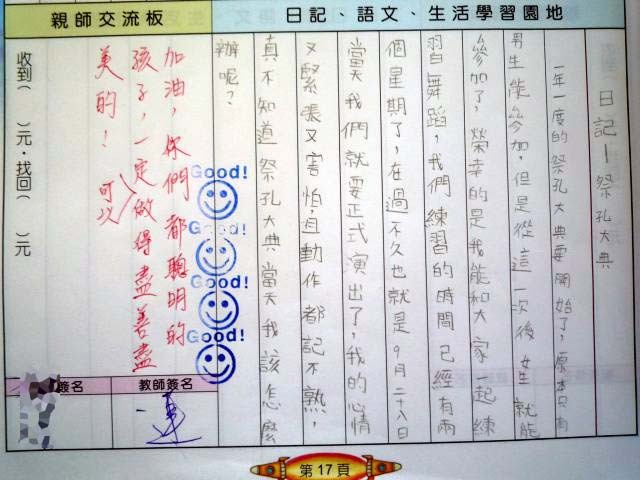 日記、語文、生活學習園地
日記—祭孔大典
一年一度的祭孔大典要開始了，原本只有
男生能參加，但是從這一次後女生就能
參加了，榮幸的是我能和大家一起練
習舞蹈，我們練習的時間已經有兩
個星期了，在過不久也就是9月二十八日
當天我們就要正式演出了，我的心情
又緊張又害怕，且動作都記不熟，
真不知道祭孔大典當天我該怎麼
辦呢？
親師交流板
Good!
Good!
Good!
Good!
加油，你們都聰明的
孩子，一定可以做得盡善盡
美的！
收到（　）元，找回（　）元
教師簽名
簽名
第17頁